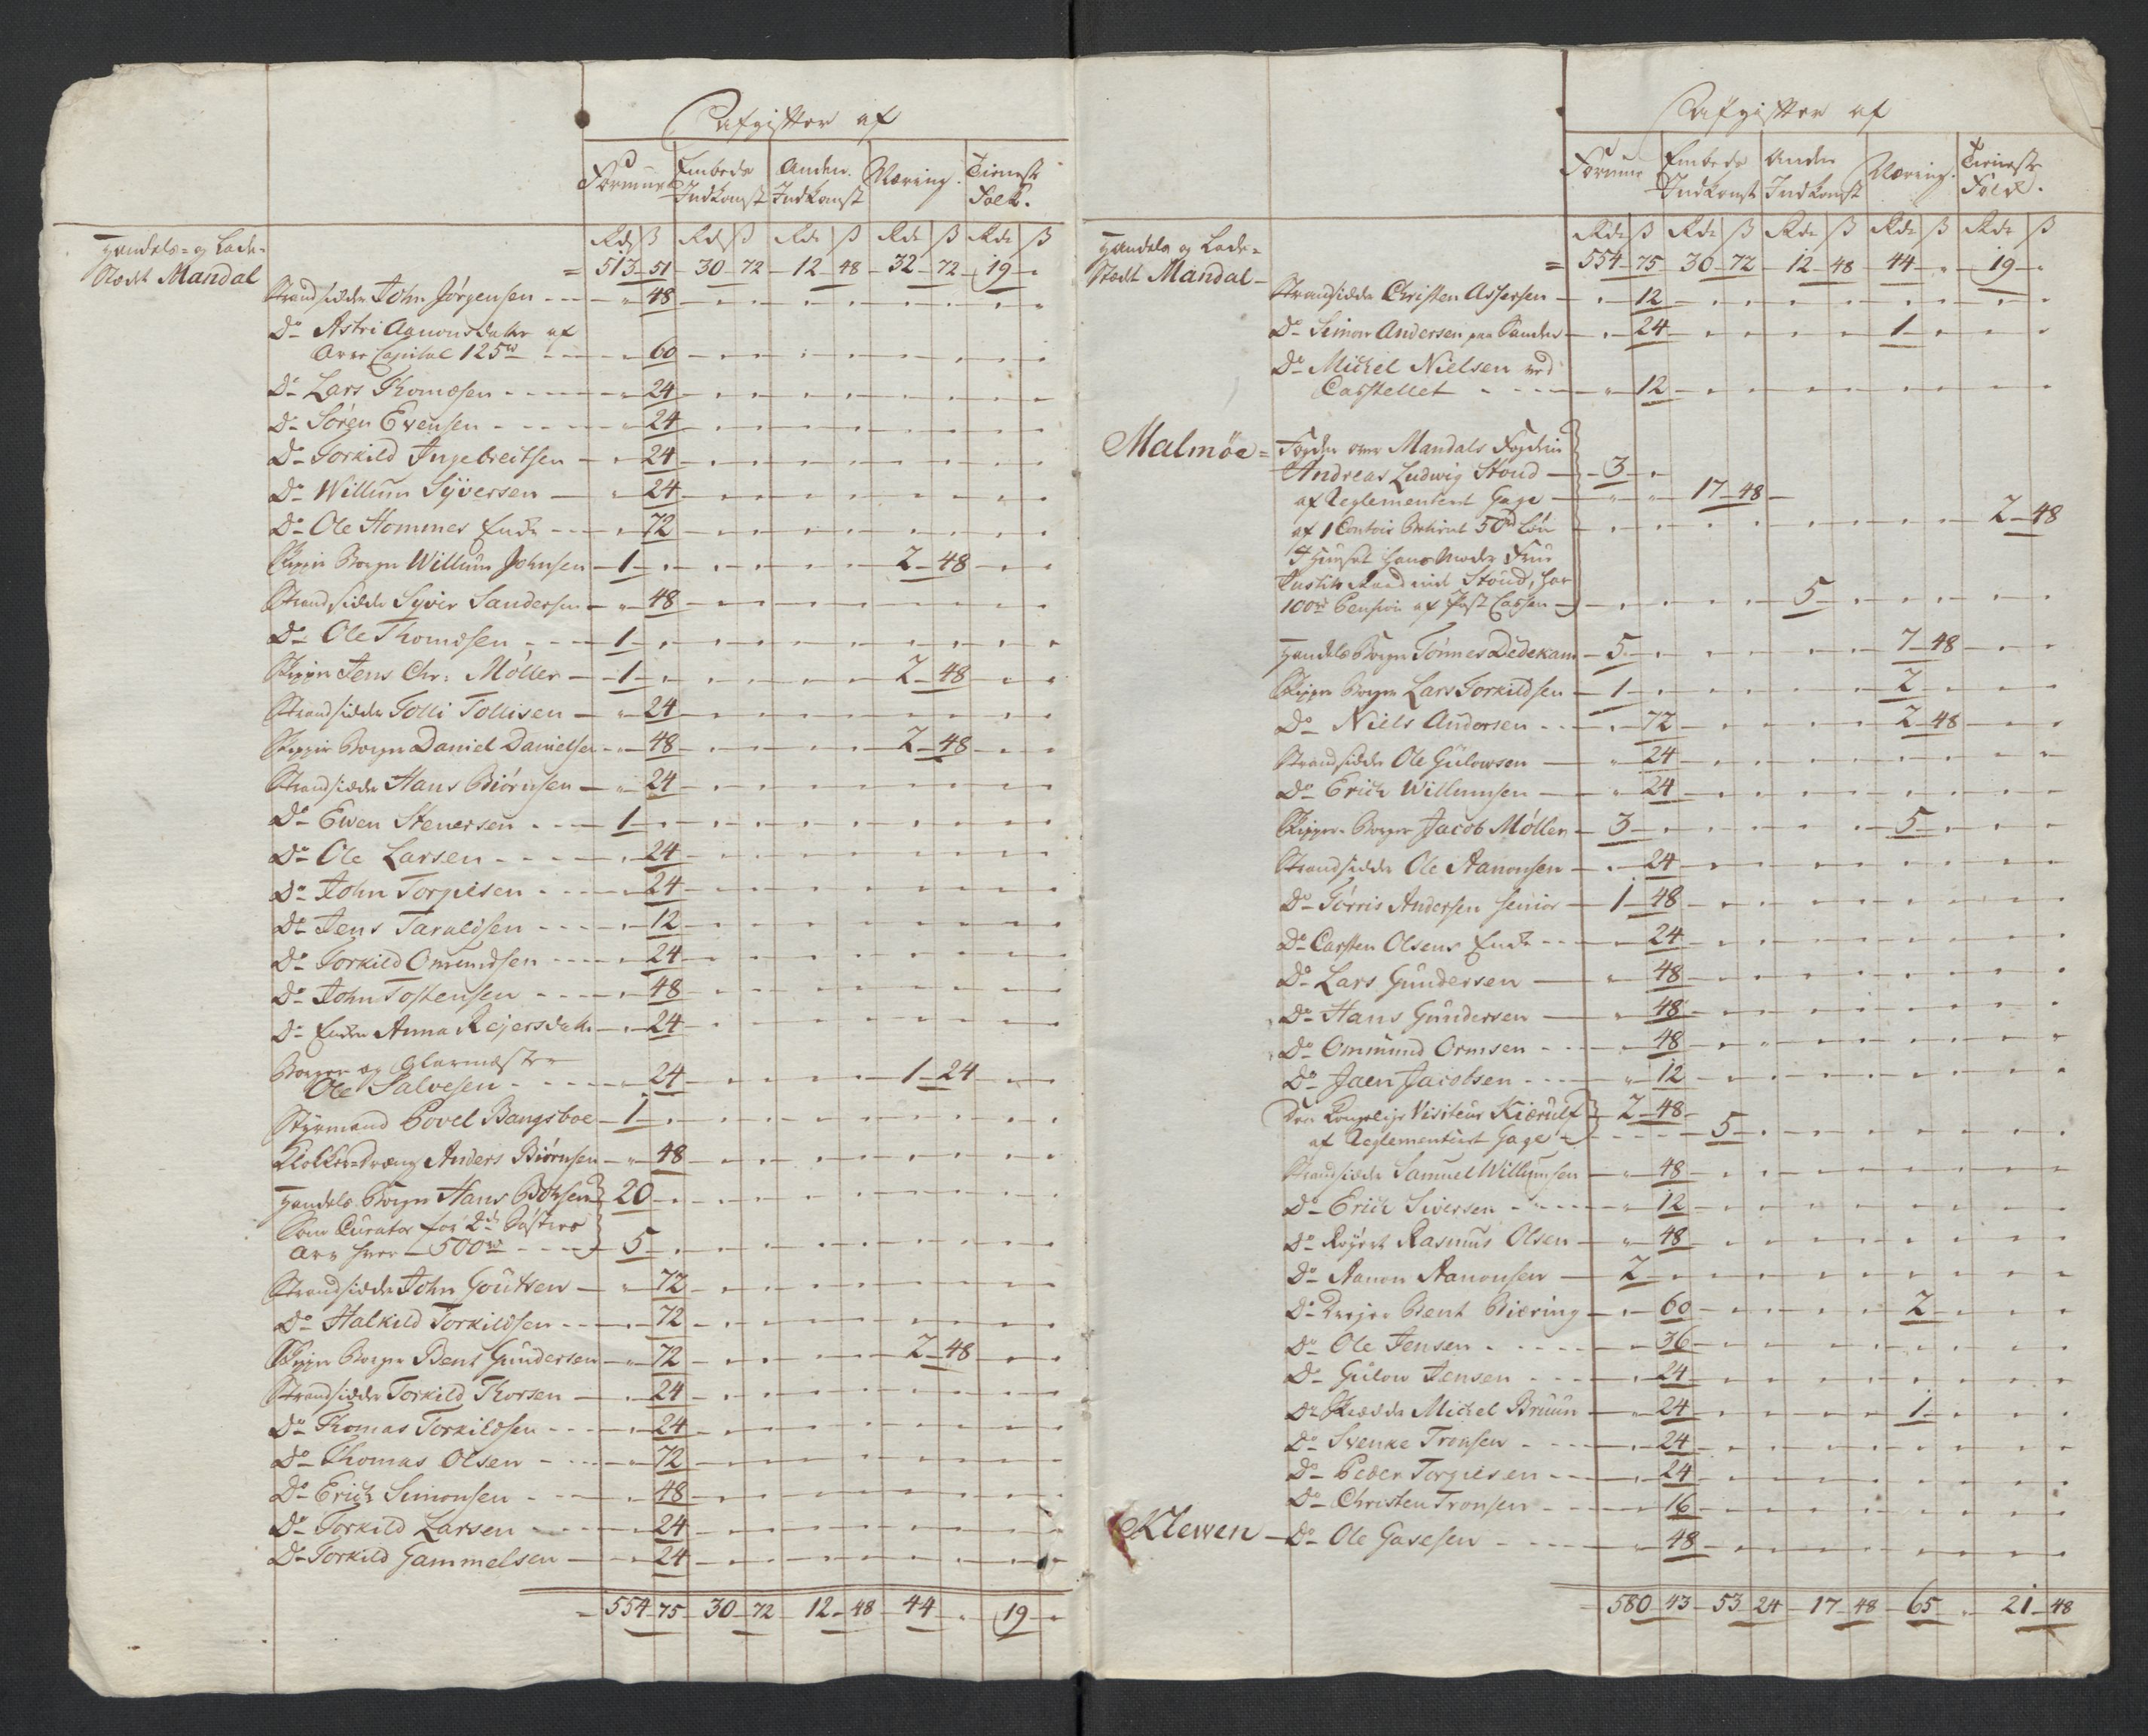 Afgifter af
Formue Embeds Indkomst Anden Indkomst Næring Tieneste Folk.
Rdr ß Rdr ß Rdr ß Rdr ß Rdr ß
Handels- og Lade-
Stædt Mandal = 513 - 51 - 30 - 72 - 12 - 48 - 32 - 72 - 19 - "
Strandsidder John Jörgensen - " - 48
Do Astri Aanonsdatter af
Arve Capital 125rd - " - 60
Do Lars Thomæsen - " - 24
Do Sören Evensen - " - 24
Do Torkild Ingebreitsen - " - 24
Do Willum Syversen - " - 24
Do Ole Hommes Enke - " - 72
Skipper Borger Willum Johnsen - 1 - " - 2 - 48
Strandsidder Syver Sandersen - " - 48
Do Ole Thomæsen - 1 - "
Skipper Jens Chr: Möller - 1 - " - 2 - 48
Strandsidder Tolli Tollisen - " - 24
Skipper Borger Daniel Danielsen - " - 48 - 2 - 48
Strandsidder Hans Biörnsen - " - 24
Do Ewen Stenersen - 1 - "
Do Ole Larsen - " - 24
Do John Torgiesen - " - 24
Do Jens Taraldsen - " - 12
Do Torkild Omundsen - " - 24
Do John Tostensen - " - 48
Do Enke Anna Rejersdatr - " - 24
Borger og Glarmæster
Ole Salvesen - " - 24 - 1 - 24
Styrmand Povel Bangsboe - 1 - "
Klokker Dræng Anders Biörnsen - " - 48
Handels Borger Hans Boysen - 20 - "
Som Curator for 2de Söstres
Arv hver 500rd - 5 - "
Strandsidder John Goutsen - " - 72
Do Halkild Torkildsen - " - 72
Skipper Borger Bent Gundersen - " - 72 - 2 - 48
Strandsidder Torkild Thorsen - " - 24
Do Thomas Torkildsen - " - 24
Do Thomas Olsen - " - 72
Do Erich Simonsen - " - 48
Do Torkild Larsen - " - 24
Do Torkild Gammelsen - " - 24
= 554 - 75 - 30 - 72 - 12 - 48 - 44 - " - 19 - "
Afgifter af
Formue Embeds Indkomst Anden Indkomst Næring. Tieneste Folk.
Rdr ß Rdr ß Rdr ß Rdr ß Rdr ß
Handels og Lade-
Stædt Mandal = 554 - 75 - 30 - 72 - 12 - 48 - 44 - " - 19 - "
Strandsidder Christen Assersen - " - 12
Do Simon Andersen paa Sanden - " - 24 - 1 - "
Do Michel Nielsen ved
Castellet - " - 12
Malmöe = Fogden over Mandals Fogderie
Andreas Ludwig Stoud - 3 - "
af Reglementeret Gage - 17 - 48
af 1 Contoir Betient 50rd Lön - 2 - 48
I Huuset hans Moder Frue
Justitz Raadinde Stoud, har
100rd Pension af Post Cassen - 5 - "
Handels Borger Tönnes Dedekam - 5 - " - 7 - 48
Skipper Borger Lars Torkildsen - 1 - " - 2 - "
Do Niels Andersen - " - 72 - 2 - 48
Strandsidder Ole Gulowsen - " - 24
Do Erich Willumsen - " - 24
Skipper-Borger Jacob Möller - 3 - " - 5 - "
Strandsidder Ole Aanonsen - " - 24
Do Törris Andersen senior - 1 - 48
Do Carsten Olsens Enke - " - 24
Do Lars Gundersen - " - 48
Do Hans Gundersen - " - 48
Do Ommund Ormsen - " - 48
Do Jaen Jacobsen - " - 12
Den Kongelige Visiteur Kiærulf - 2 - 48
af Reglementeret Gage - 5 - "
Strandsidder Samuel Willumsen - " - 48
Do Erich Siversen - " - 12
Do Röyert Rasmus Olsen - " - 48
Do Aanon Aanonsen - 2 - "
Do Dreyer Bent Biering - " - 60 - 2 - "
Do Ole Jensen - " - 36
Do Gulow Jensen - " - 24
Do Skrædder Michel Bruun - " - 24 - 1 - "
Do Svenke Tronsen - " - 24
Do Peder Torgiesen - " - 24
Do Christen Tronsen - " - 16
Klewen - Do Ole Gasesen - " - 48
580 - 43 - 53 - 24 - 17 - 48 - 65 - " - 21 - 48